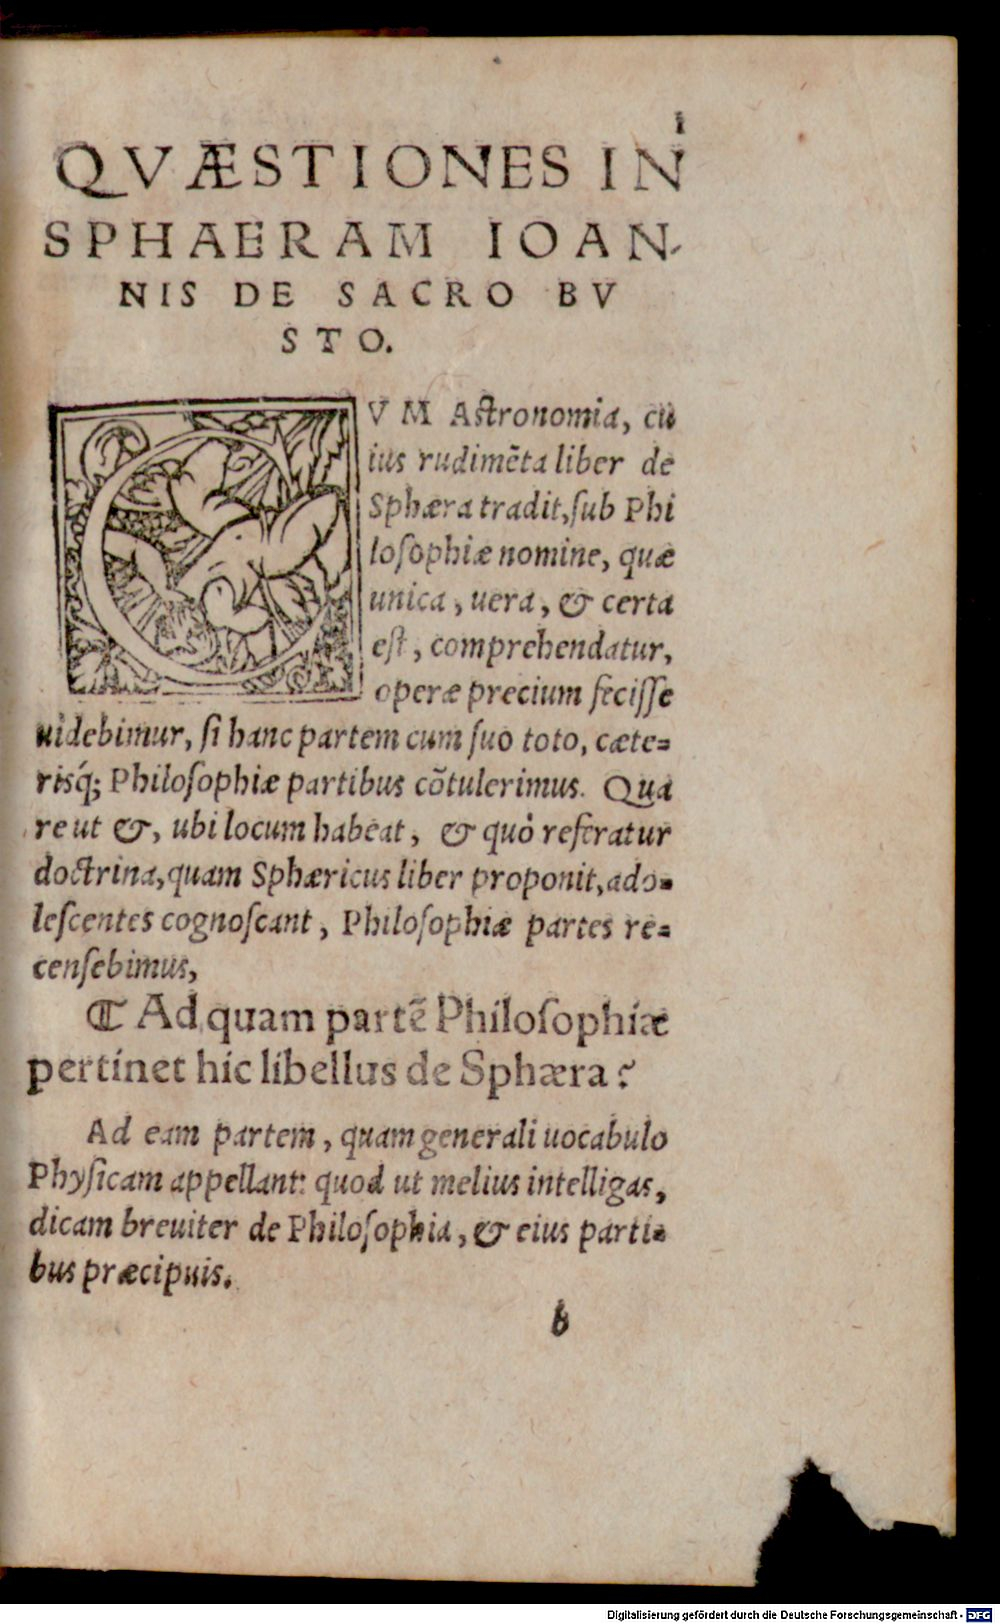 1
QVÆSTIONES IN
SPHAERAM IOAN-
NIS DE SACRO BV
STO.
CVM Astronomia, cu
ius rudimẽta liber de
Sphæra tradit, ſub Phi
loſophiæ nomine, quæ
unica, uera, & certa
eſt, comprehendatur,
operæ precium feciſſe
uidebimur, ſi hanc partem cum ſuo toto, cæte=
risq́; Philoſophiæ partibus cõtulerimus. Qua
re ut &, ubi locum habeat, & quò referatur
doctrina, quam Sphæricus liber proponit, ado=
leſcentes cognoſcant, Philoſophiæ partes re=
cenſebimus,
¶ Ad quam partẽ Philoſophiæ
pertinet hic libellus de Sphæra?
Ad eam partem, quam generali uocabulo
Phyſicam appellant: quod ut melius intelligas,
dicam breuiter de Philoſophia, & eius parti=
bus præcipuis.
b
Digitalisierung gefördert durch die Deutsche Forschungsgemeinschaft - DFG